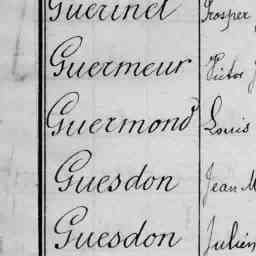 Guerinel Prosper
Guermeur Victor
Guermond Louis
Guesdon Jean M
Guesdon Julien